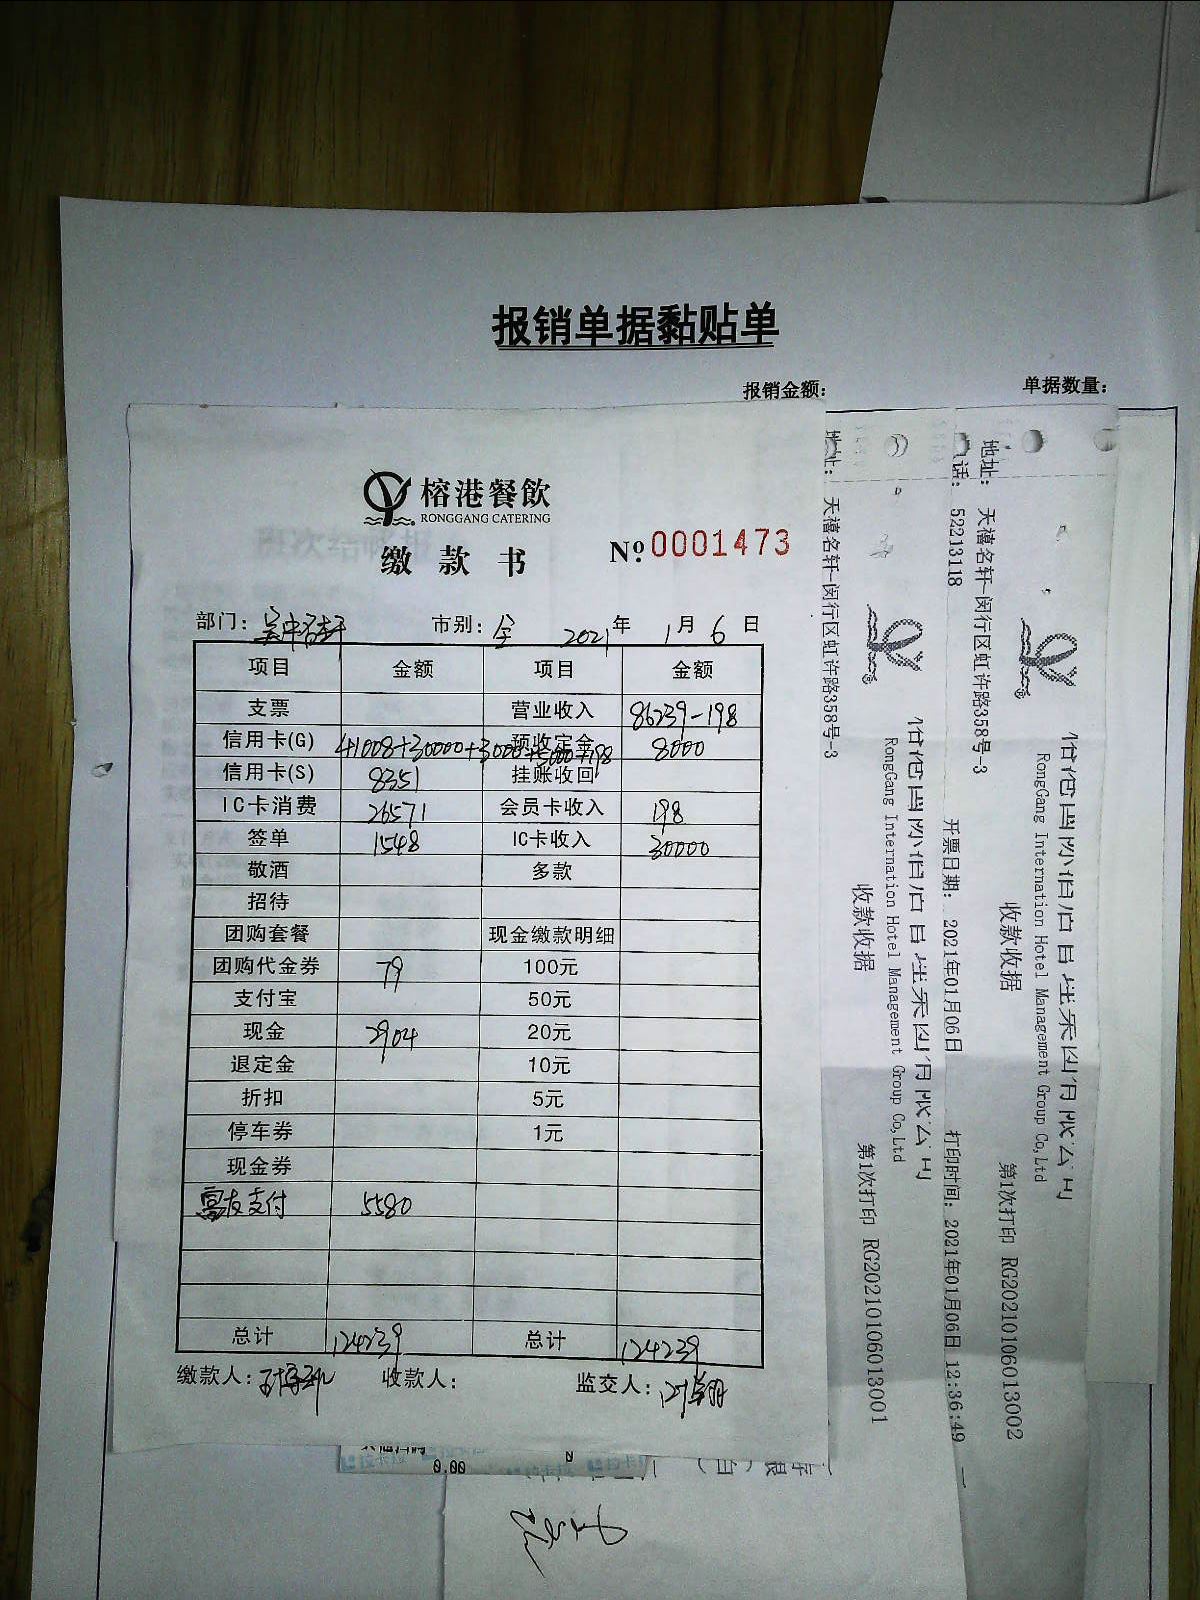 报销单据黏贴单
报销金额:
单据数量:
榕港餐飲
RONGGANG CATERING
缴款书
№ 0001473
部门: 市别: 全 2021年 1月 6日
项目 金额 项目 金额
支票 营业收入 86239-198
信用卡(G) 41008+30000+3000+5000+198 预收定金 8000
信用卡(S) 8351 挂账收回
IC卡消费 26571 会员卡收入 198
签单 1548 IC卡收入 30000
敬酒 多款
招待
团购套餐 现金缴款明细
团购代金券 79 100元
支付宝 50元
现金 2904 20元
退定金 10元
折扣 5元
停车券 1元
现金券
支付 5580
总计 124239 总计 124239
缴款人: 收款人: 监交人:
0.00
地址: 天禧名轩-闵行区虹许路358号-3
RongGang International Hotel Management Group Co,Ltd
收款收据
第1次打印 RG20210106013001
话: 52213118
开票日期: 2021年01月06日 打印时间: 2021年01月06日 12:36:49
地址: 天禧名轩-闵行区虹许路358号-3
RongGang International Hotel Management Group Co,Ltd
收款收据
第1次打印 RG20210106013002